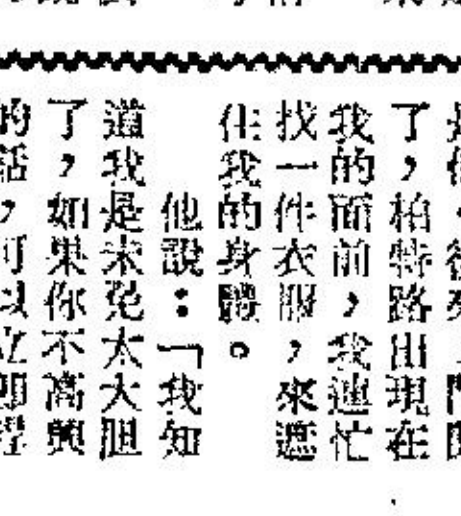 了，柏特路出現在
我的面前，我連忙
找一件衣服，來遮
住我的身體。
他說：「我知
道我是未免太大胆
了，如果你不高興
的話，可以立即